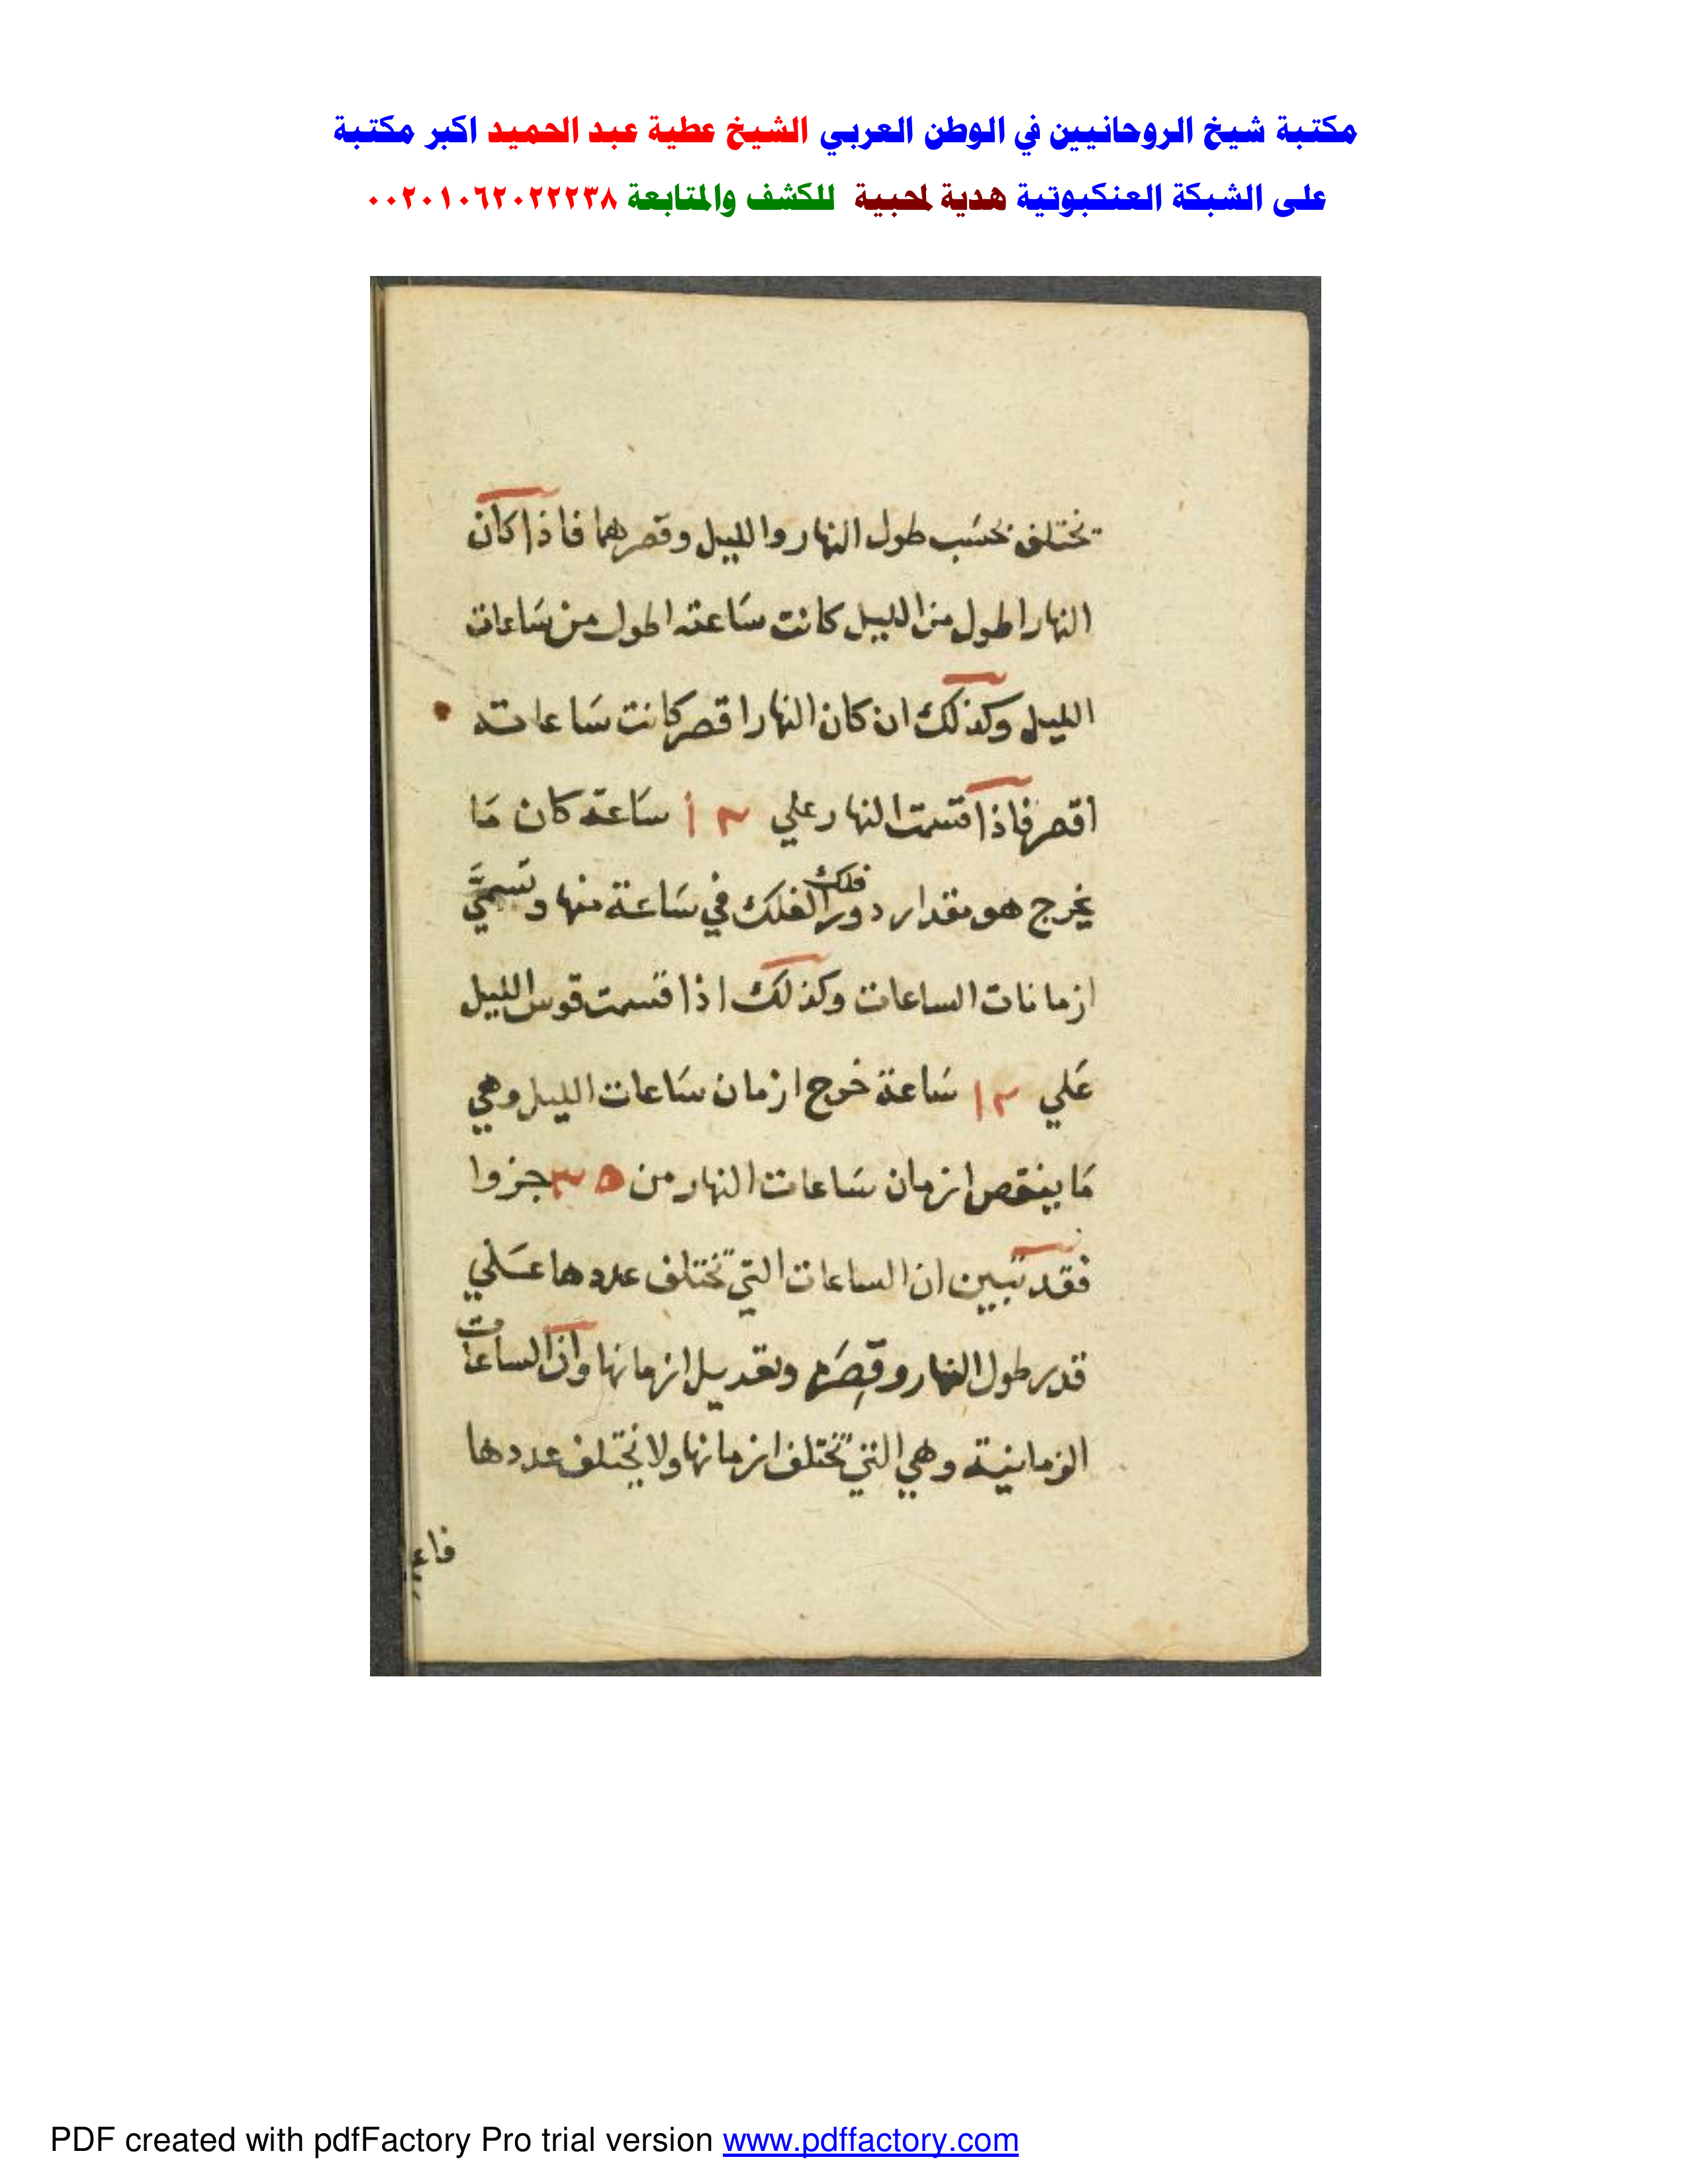 مكتبة شيخ الروحانيين في الوطن العربي الشيخ عطية عبد الحميد اكبر مكتبة
على الشبكة العنكبوتية هدية لمحبية للكشف والمتابعة ٠٠٢٠١٠٦٢٠٢٢٢٣٨
تختلف بحسَب طول النهار والليل وقصرهما فاذا كان
النهار اطول من الليل كانت سَاعته اطول من سَاعات
الليل وكذلك ان كان النهار اقصر كانت سَاعاته
اقصر فاذا قسمت النهار علي ١٢ سَاعة كان مَا
يخرج هو مقدار دور الفلك فلك في سَاعة منها وتسميَّ
ازمانات الساعات وكذلك اذا قسمت قوس الليل
عَلي ١٢ سَاعة خرج ازمان سَاعات الليل وهي
مَا ينقص ازمان سَاعات النهار من جزوا
فقد تبين ان الساعات التي تختلف عددها عَلي
قدر طول النهار وقِصَره وتعديل ازمانها وان الساعات
الزمانية وهي التي تختلف ازمانها ولا يختلف عددها
PDF created with pdfFactory Pro trial version www.pdffactory.com